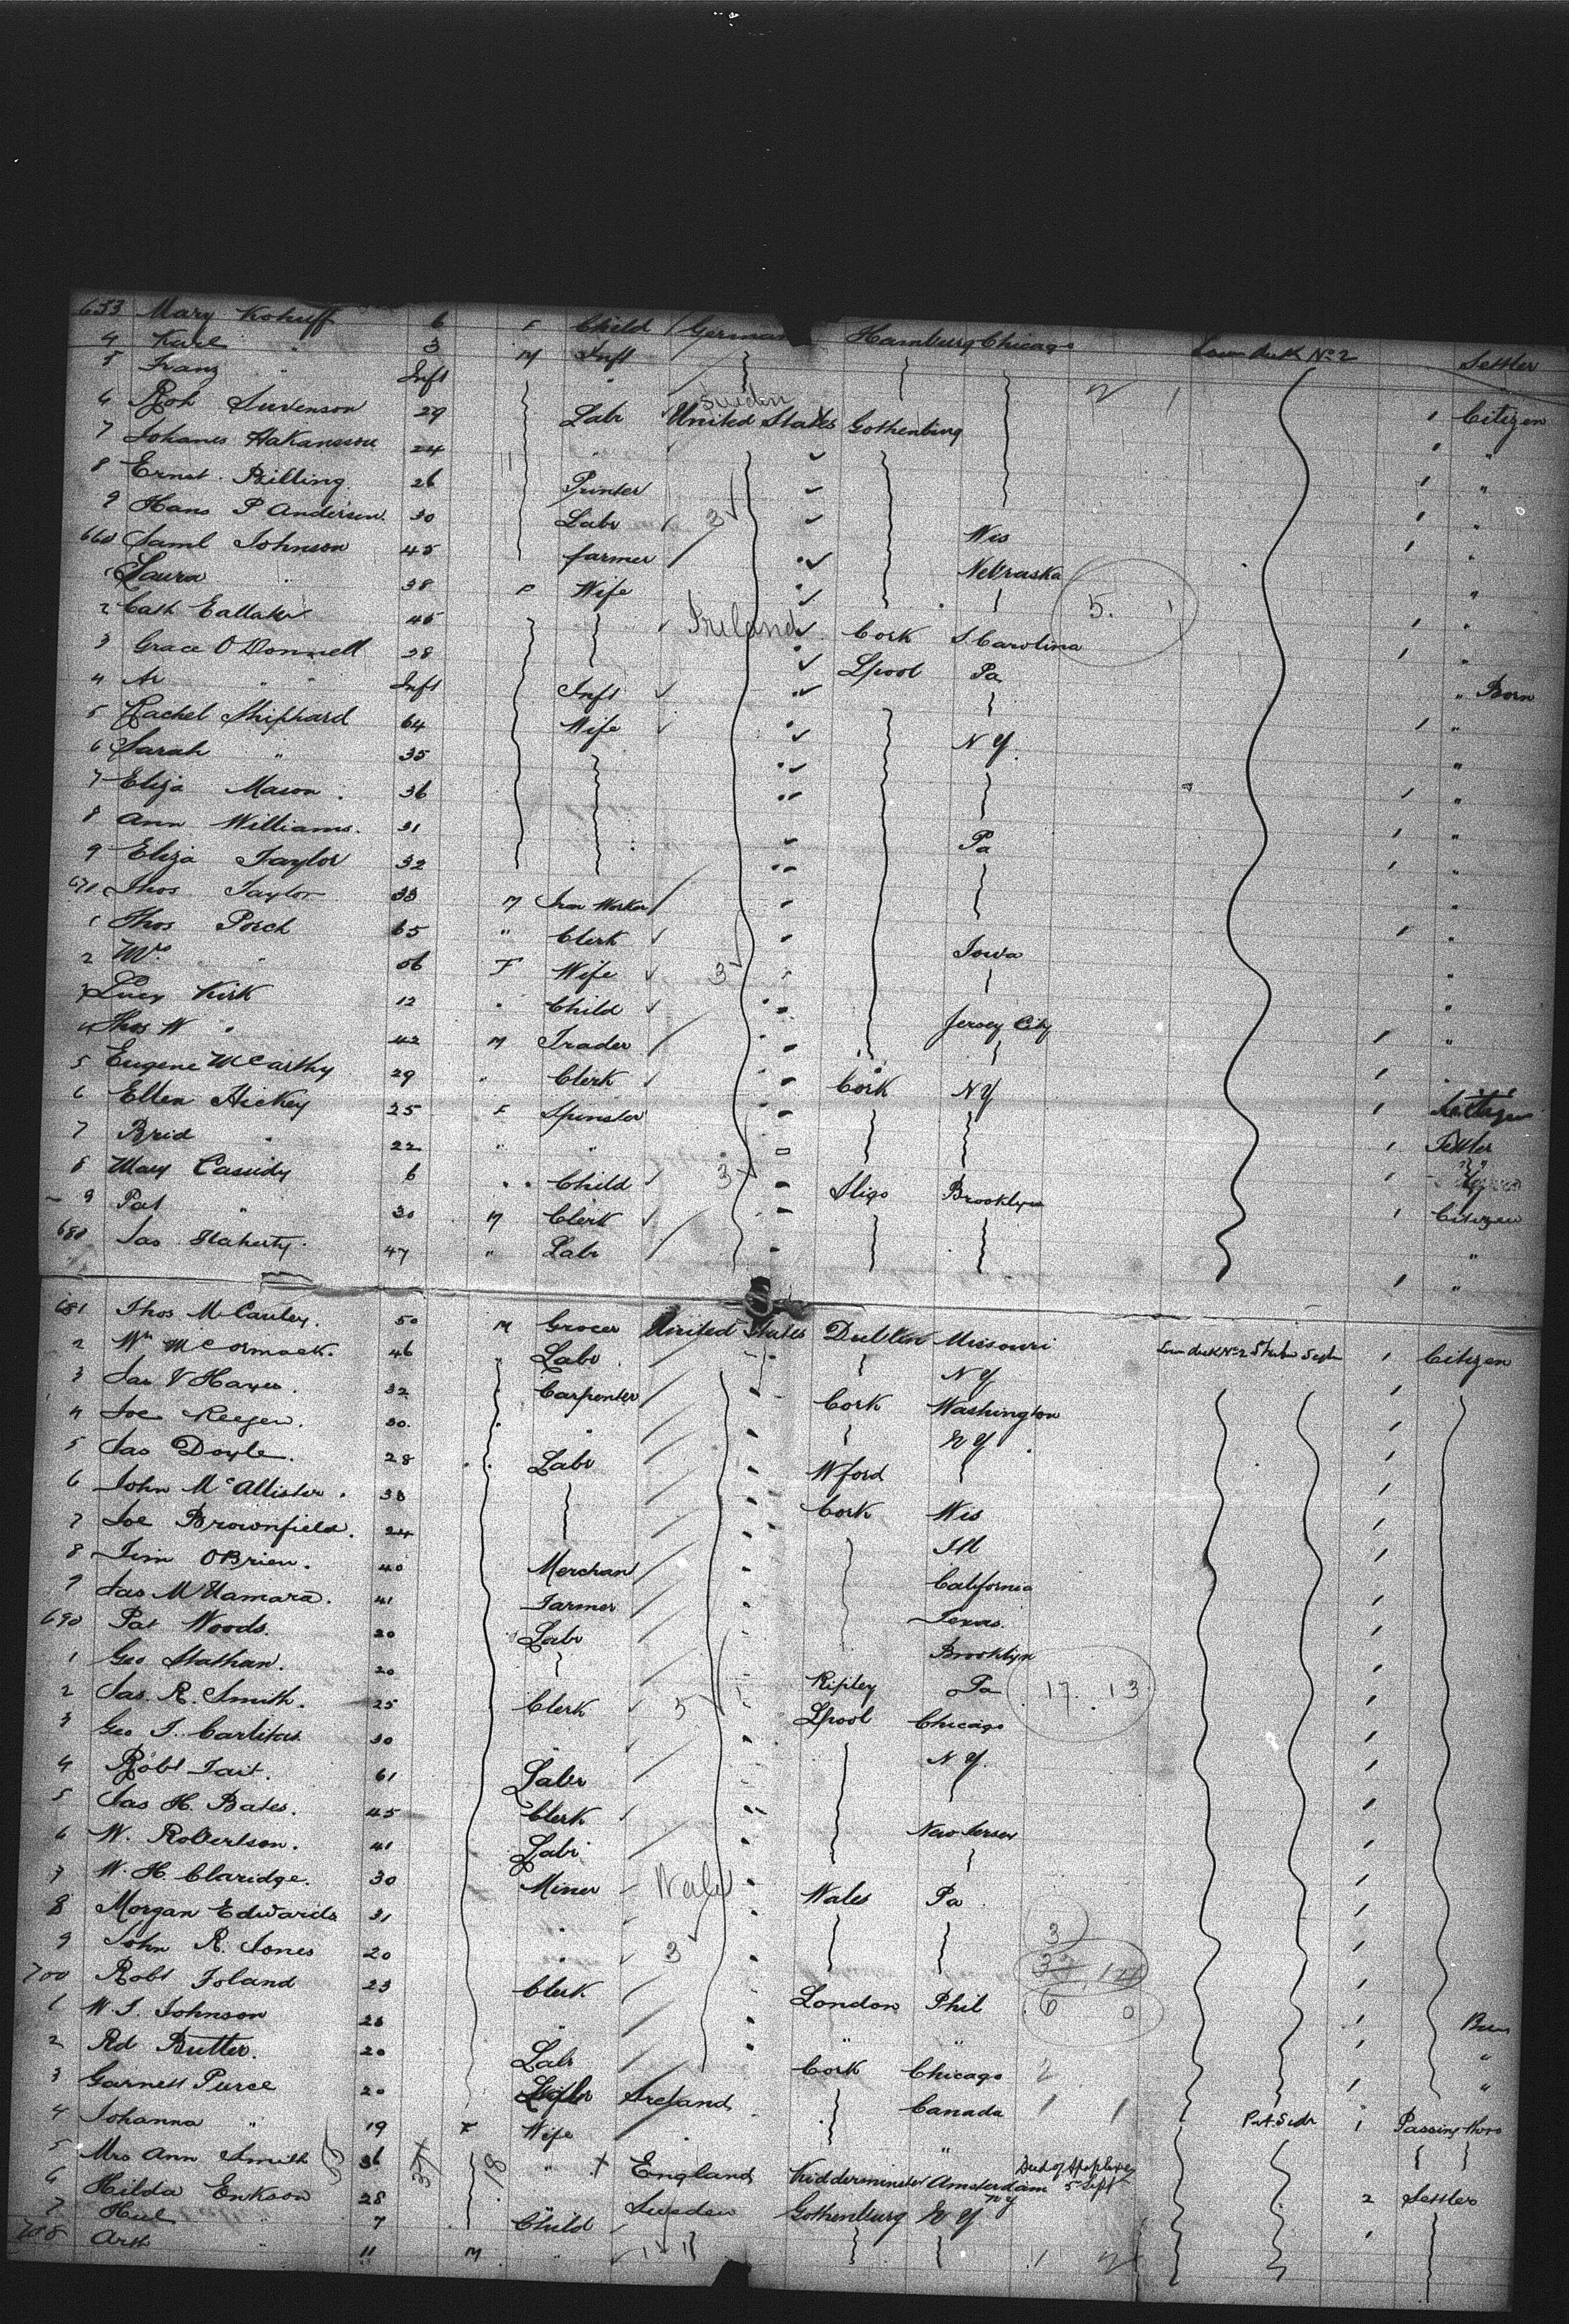 653 Mary Kohuff 6 F Child German Hamburg Chicago Low deck No 2 Settler
4 Karl " 3 M Inft
5 Franz " Inft "
Sweden
6 Joh Swenson 29 Labr United States Gothenburg 1 Citizen
7 Johanes Hakansson 24 " 1 "
8 Ernst Billing 26 Printer 1 "
9 Hans P Andersen 30 Labr 3 Wis 1 "
660 Saml Johnson 45 farmer Nebraska 1 "
1 Laura " 38 F Wife "
2 Cath 45 Ireland Cork S Carolina 5. 1 1 "
3 Grace O'Donnell 28 Lpool Pa 1 "
4 " " Inft Inft " Born
5 Rachel Shiphard 64 Wife N Y. 1 "
6 Sarah " 35 "
7 Eliza Mason. 36 1 "
8 Ann Williams. 31 Pa 1 "
9 Eliza Taylor 32 1 "
671 Thos Taylor 33 M Iron Worker "
1 Thos Porch 65 " Clerk Iowa 1 "
2 Mrs " 56 F Wife 3 "
3 Lucy Kirk 12 " Child Jersey City "
4 Thos W " 42 M Trader 1 "
5 Eugene McCarthy 29 " Clerk Cork NY 1 "
6 Ellen Hickey 25 F Spinster 1
7 Brid " 22 " " 1 Settler
8 Mary Cassidy 6 " Child 3 Sligo Brooklyn 1
9 Pat " 30 M Clerk 1 Citizen
680 Jas Flaherty. 47 " Labr "
1 "
681 Thos McCauley. 50 M Grocer United States Dublin Missouri Low deck No 2 1 Citizen
2 Wm McCormack. 46 " Labr N Y 1
3 Jas V Hayes. 32 Carpenter Cork Washington 1
4 Joe Keegen. 30. " N Y. 1
5 Jas Doyle. 28 Labr Wford 1
6 John McAllister. 38 Cork Wis 1
7 Joe Brownfield. 24 Ill 1
8 Jim OBrien. 40 Merchan California 1
9 Jas McNamara. 41 Farmer Texas. 1
690 Pat Woods. 20 Labr Brooklyn 1
1 Geo Stathan. 20 Ripley Pa 17. 13 1
2 Jas. R. Smith. 25 Clerk 3 Lpool Chicago 1
3 Geo T. 30 " N Y. 1
4 Robt Tait. 61 Labr 1
5 Jas H. Bates. 45 Clerk New Jersey 1
6 W. Robertson. 41 Labr 1
7 W. H. Claridge. 30 Miner Wales Wales Pa. 1
8 Morgan Edwards 31 " 3 1
9 John R. Jones 20 " 3 1
700 Robt Toland 23 Clerk London Phil 6 0 1
1 W. J. Johnson 28 " " " 1
2 Rd Butter. 20 Labr Cork Chicago 2 "
3 Garnett Purce 20 Ireland Canada 1 1 1 "
4 Johanna " 19 F Wife " " 1 Passing thro
5 Mrs Ann Smith 36 " England Kidderminster Amsterdam NY Died of Apoplexy 5 Sept
6 Hilda Erikson 28 Sweden Gothenburg N Y 2 Settler
7 " 7 Child 1
708 Arth " 11 M "